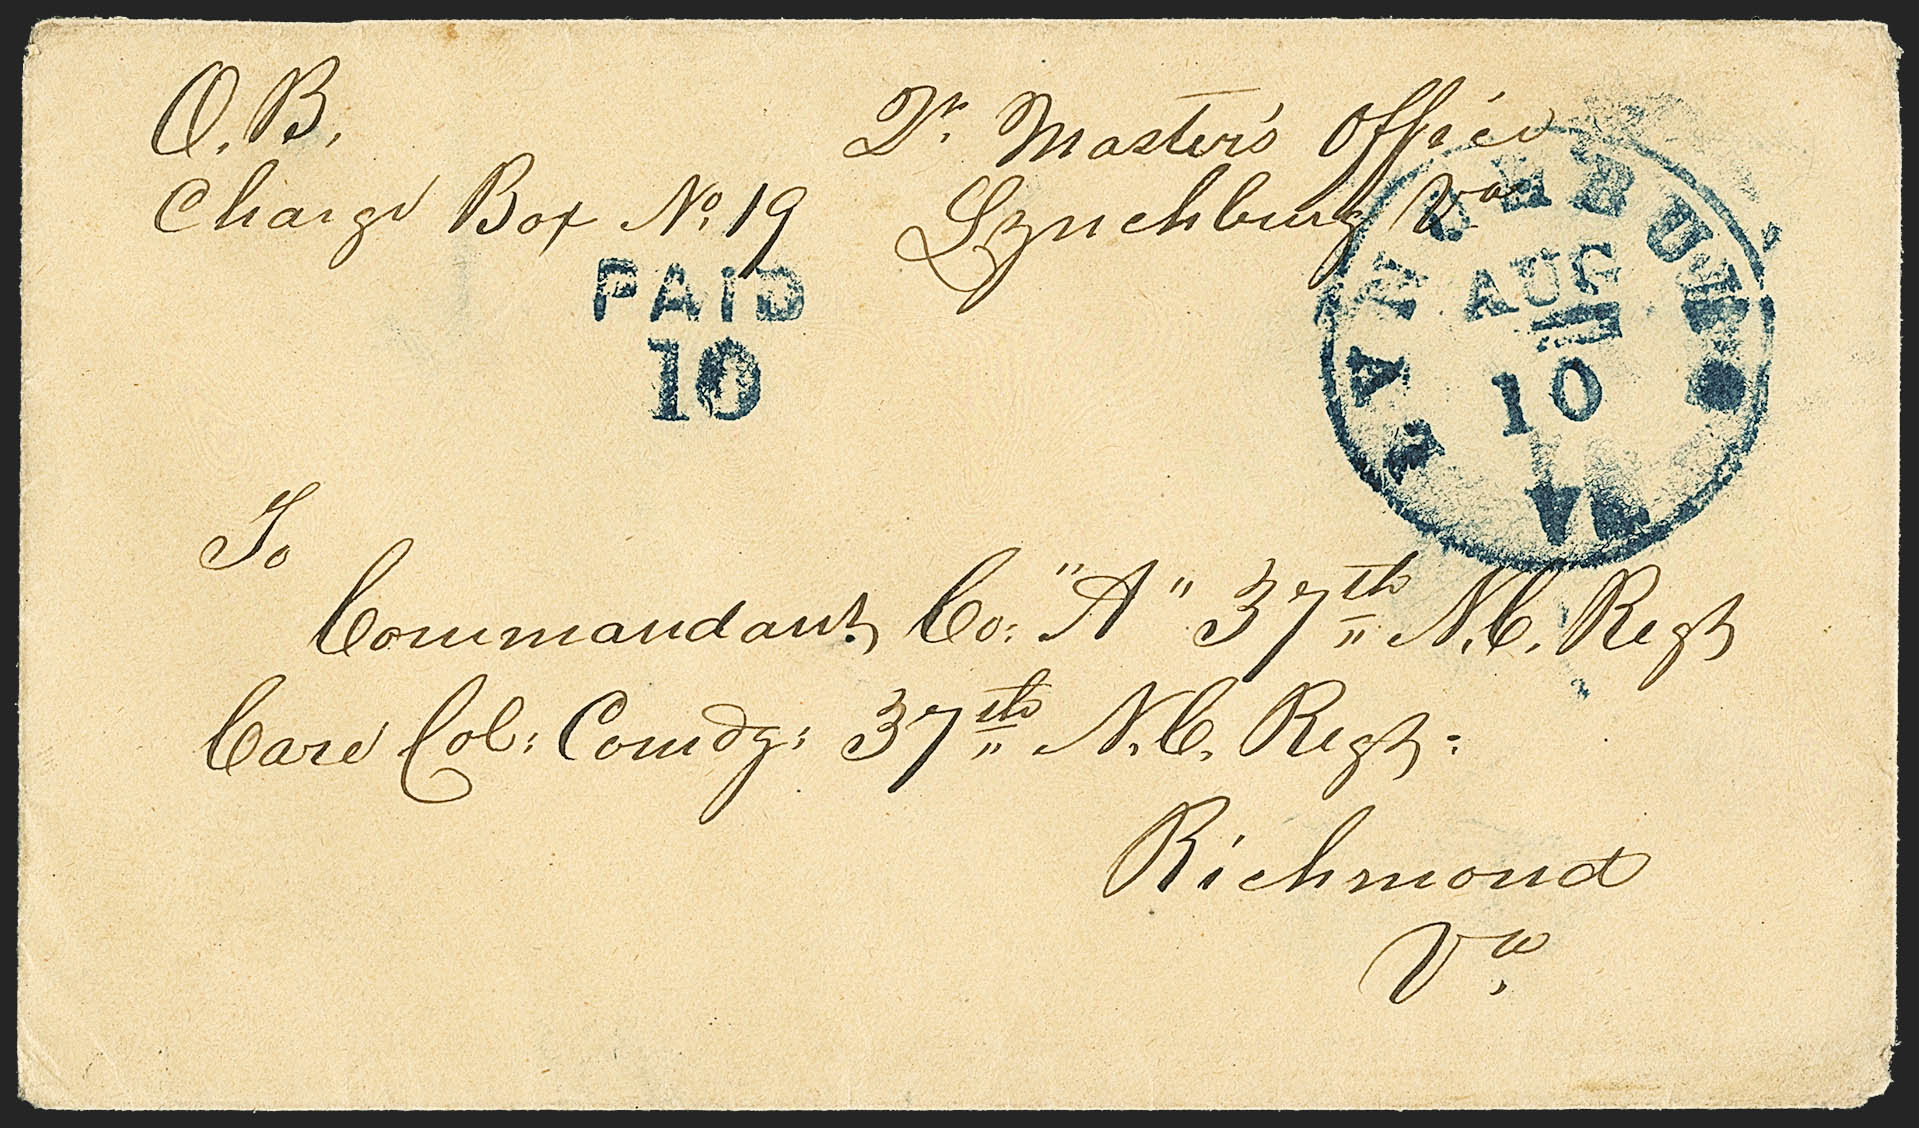 O.B.
Charge Box No. 19
Qr. Master's Office
Lynchburg Va
PAID
10
LYNCHBURG
AUG
10
VA
To
Commandant, Co: "A" 37th N.C. Regt
Care Col: Comdg: 37th N.C. Regt:
Richmond
Va.